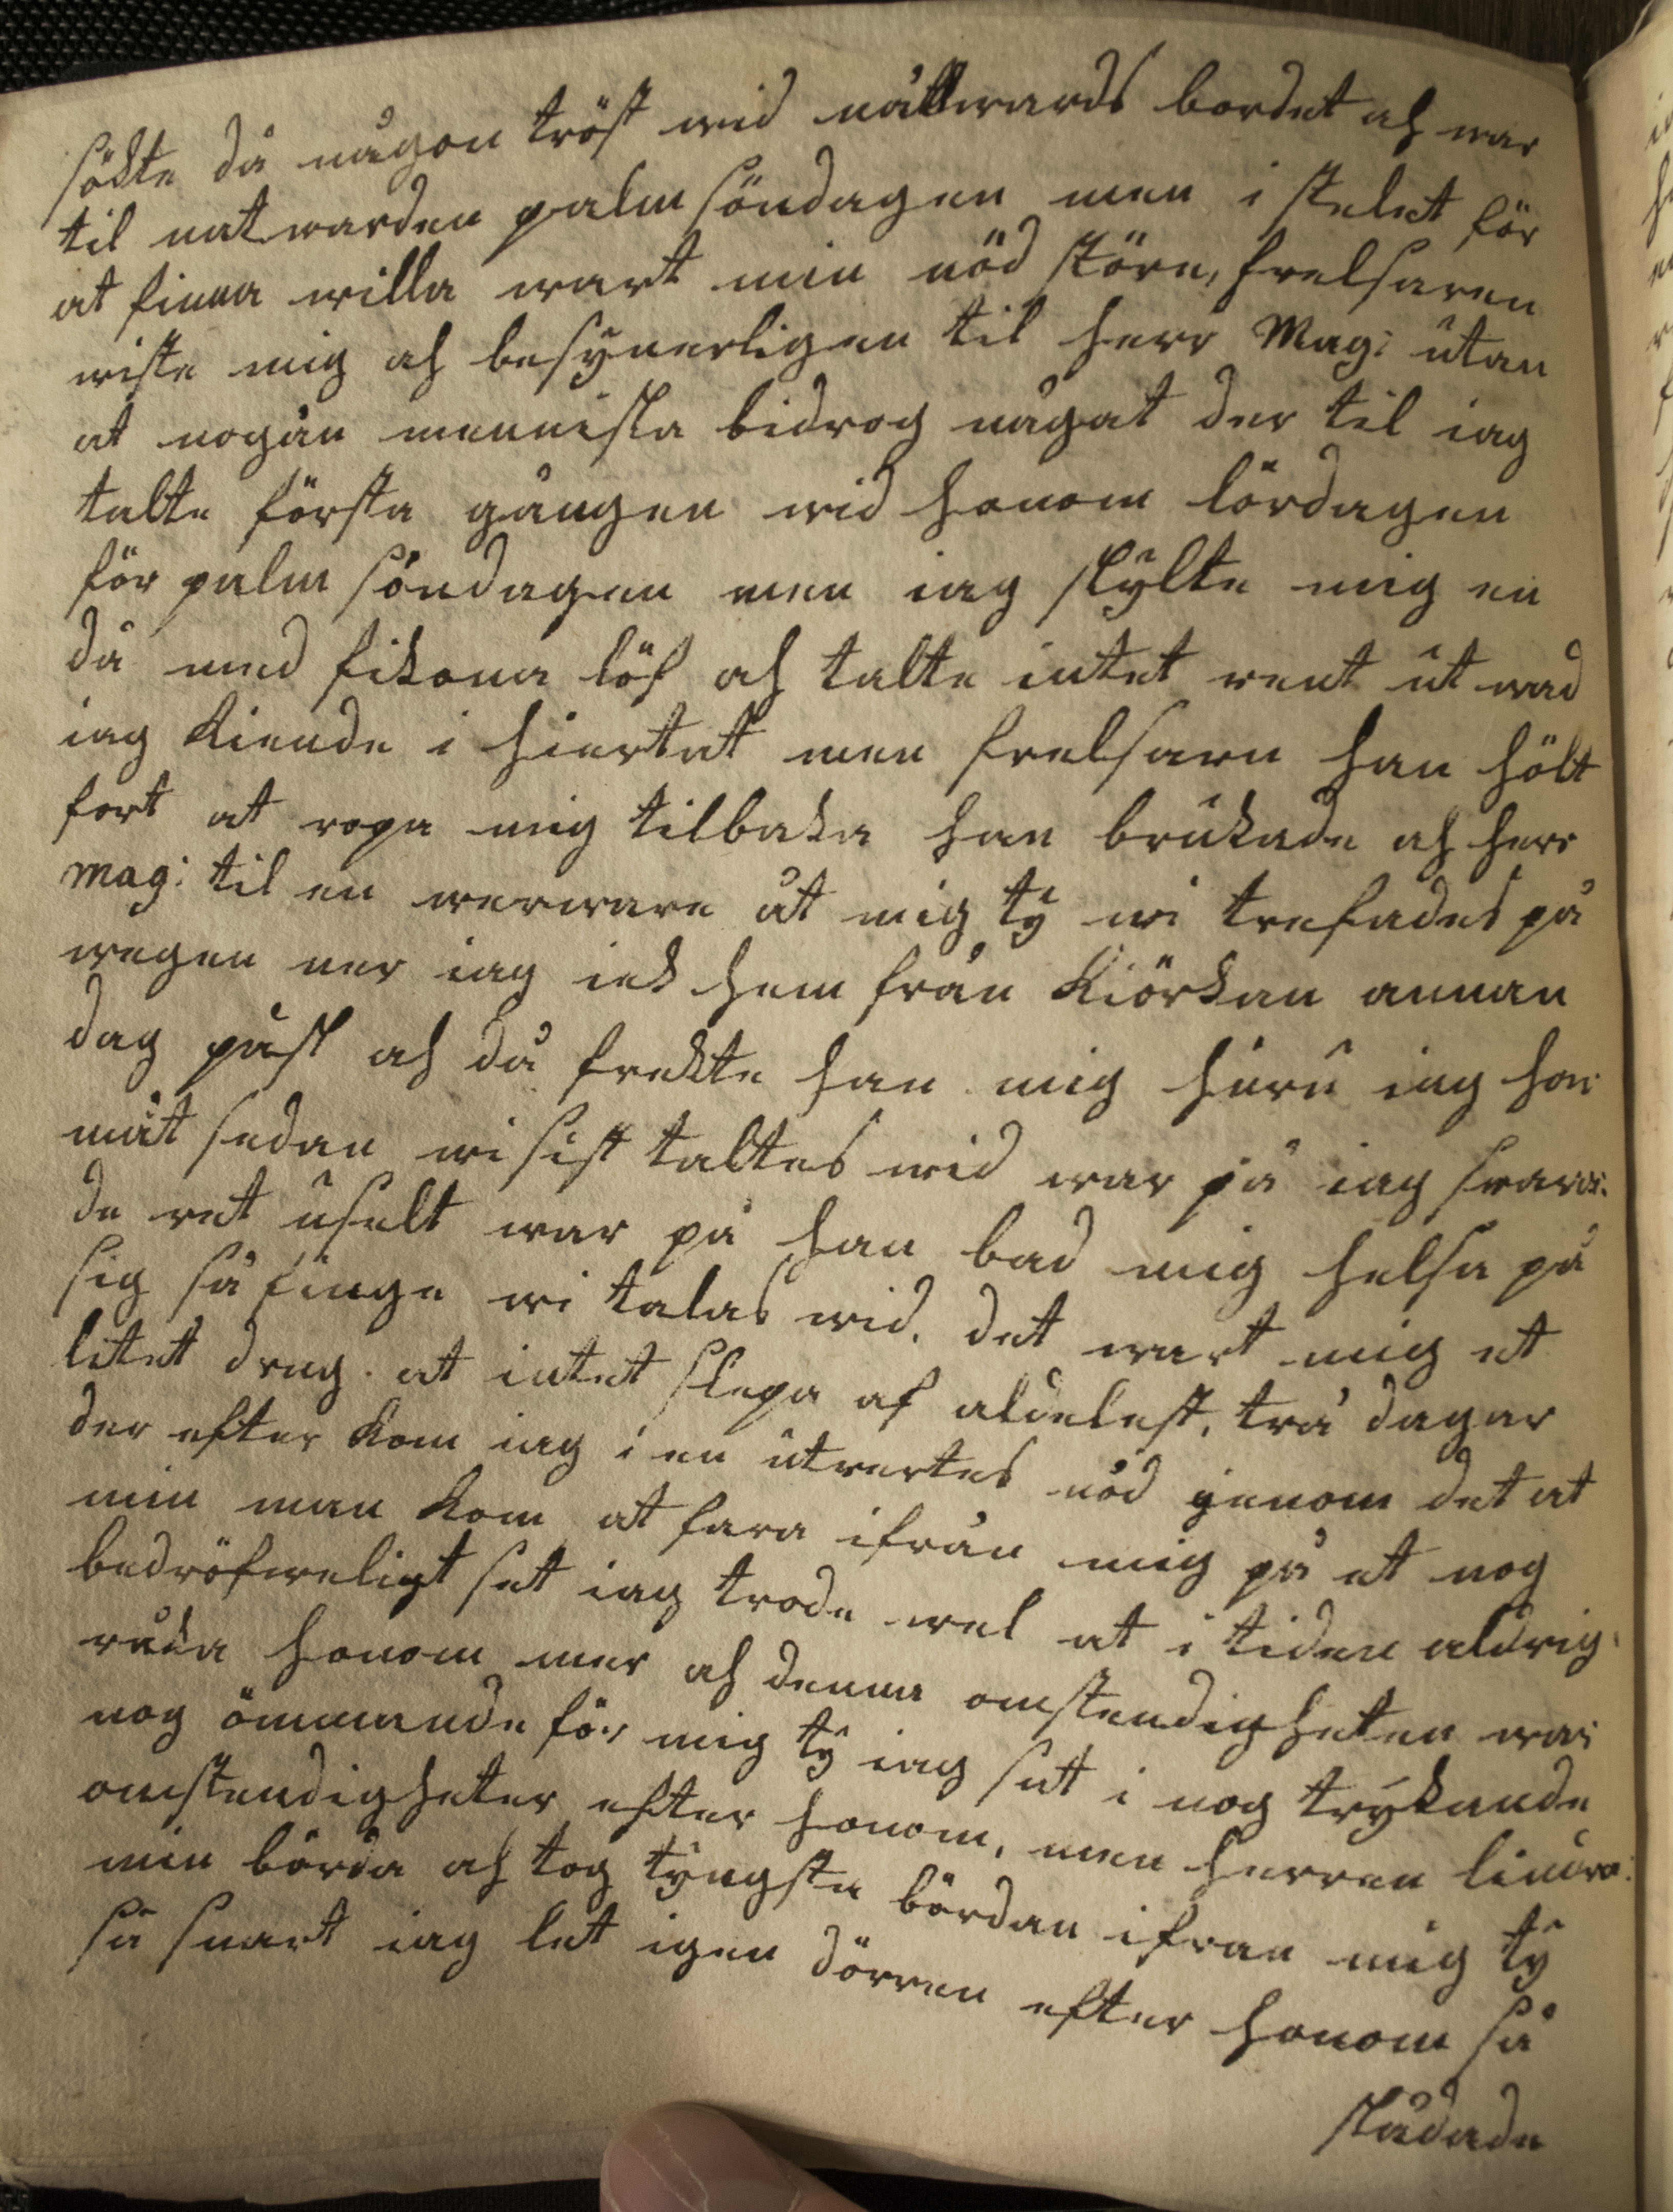 sökte då någon tröst wid nattwards bordet ah war
til natwarden palm söndagen men i stelet för
at finna willa wart min nöd störe, frelsaren
wiste mig ah besynerligen til herr Mag: utan
at nogån menniska bidrog någat der til iag
talte första gången wid honom lördagen
för palm söndagen men iag skylte mig en
då med fikona löf ah talte intet rent ut wad
iag kiende i hiertat men frelsarn han hölt
fort at ropa mig tilbaka han brukade ah herr
mag: til en werware åt mig ty wi trefades på
wegen ner iag iek hem från kiörkan annan
dag påsk ah då frekte han mig huru iag har
måt sedan wi sist taltes wid war på iag swara:
de ret uselt war på han bad mig helsa på
sig så finge wi talas wid. det wart mig et
litet drag. at intet slepa af aldelest, trå dagar
der efter kom iag i en utwertes nöd genom det at
min man kom at fara ifrån mig på et nog
bedröfweligt set iag trode wel at i tiden aldrig
råka honom mer ah denna omstendigheten war
nog ömmande för mig ty iag satt i nog trykande
omstendigheter efter honom, men herren lindra:
min börda ah tog tyngsta bördan ifran mig ty
så snart iag let igen dörren efter honom så
städade